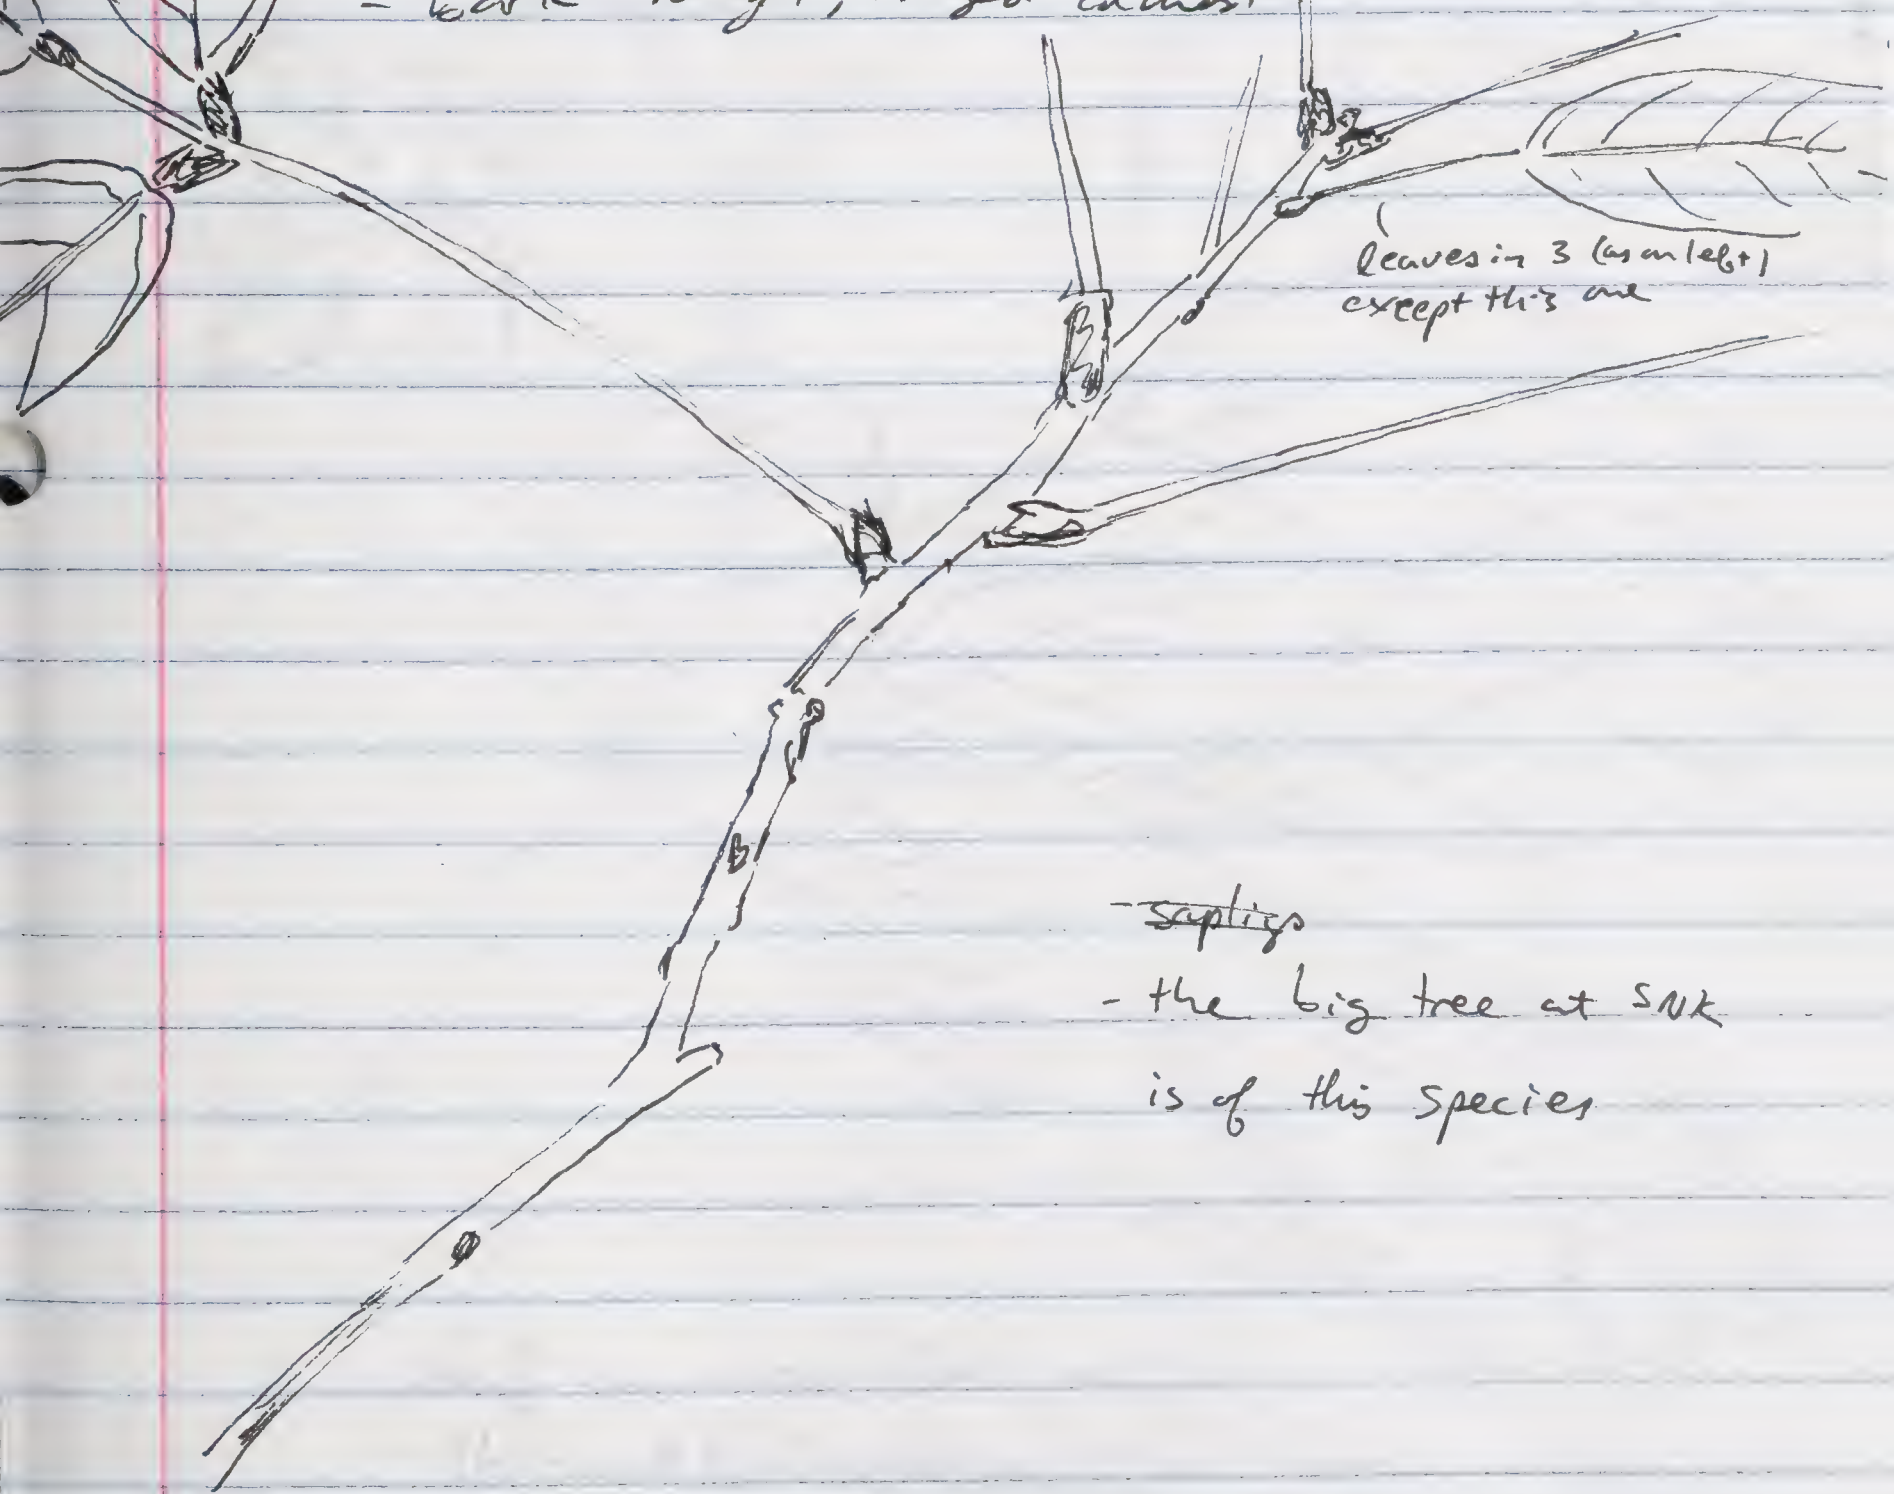 - bark
leaves in 3 (as on left)
except this one
- sapligs
- the big tree at SNK
is of this species